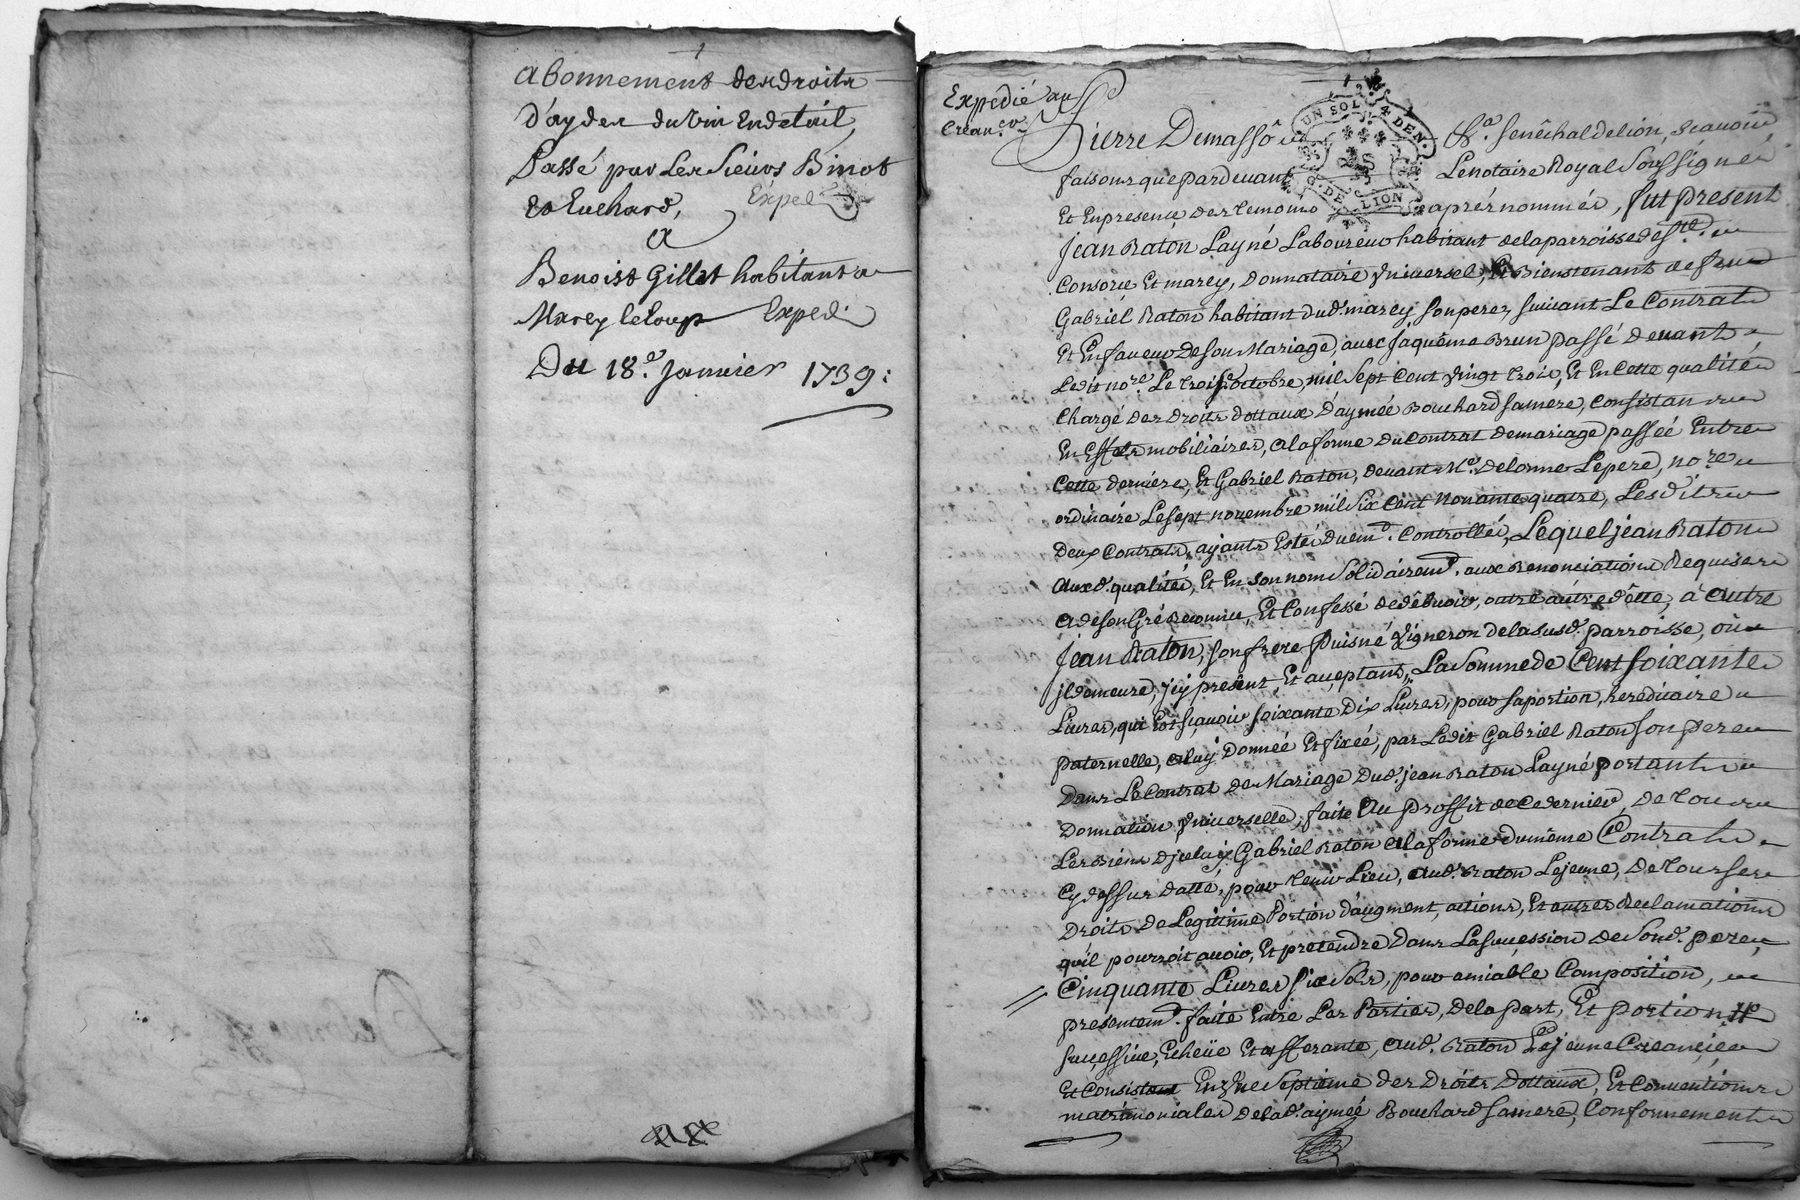 abonnement des droits
D'aydes du Vin En detail,
Passé par Les Sieurs Binot
et Euchard, Exped
a
Benoist Gillet habitant a
Marcy le Loup Exped:
Du 18.e Janvier 1739:
Expedié au
Crean.er
UN SOL 4 DEN.
G. DE LION
Pierre Demasso Senêchal de lion, scavoir
faisons que pardevant Le notaire Royal Soussigné
Et En presence des temoins aprés nommés, fut present
Jean Raton Layné Laboureur habitant de la parroisse de
Consorce Et marcy, Donnataire Universel, Et Bienstenant de feu
Gabriél Raton habitant dud. marcy son pere, suivant Le Contrat
Et En faveur De son Mariage, avec Jaquême Brun passé Devant
Ledit no.re Le trois.e octobre, mil Sept Cent Vingt trois, Et En Cette qualité
Chargé des Droits dottaux D'aymée Bouchard sa mere, Consistan
En Effets mobiliaires, a la forme du Contrat de mariage passéé Entre
Cette derniére, Et Gabriel Raton, devant M.e Delorme Le pere, no.re
ordinaire Le Sept novembre mil Six Cent Nonante quatre, Lesdits
deux Contrats, ayants Estés duem.t Controllés, Lequel jean Raton
Aux d. qualités, Et En Son nom Solidairem.t, aux Renonciations Requises
a de son Gré Reconnu, Et Confessé de dêbvoir, outre autre dôtte, à autre
Jean Raton, son frere Puisné Vigneron de la susd. parroisse, ou
jl demeure, jcy present Et acceptant, La Somme de Cent soixante
Livres, qui Est scavoir soixante Dix Livres, pour sa portion, hereditaire
paternelle, a luy Donnéé Et fixéé, par Ledit Gabriel Raton son pere
Dans Le Contrat de Mariage Dud. jean Raton Layné portant
Donnation Universelle, faite Au Proffit de Ce dernier, De tou
Les Biens D'jceluy Gabriel Raton a la forme du même Contrat
Cy dessus datté, pour tenir Lieu, aud. Raton Le jeune, De tous ses
Droits De Legitime Portion d'augment, actions, Et autres Reclamations
qu'il pourroit avoir, Et pretendre Dans La succession de Sond. pere,
Cinquante Livres six sols, pour amiable Composition,
presentem.t faite Entre Les Parties, de la part, Et portion
successive, Echeüe Et afferante, aud. Raton Le jeune Creancier
Et Consistant En Une Septieme des Droits Dottaux, Et Conventions
matrimoniales de lad. aymée Bouchard sa mere, Conformement